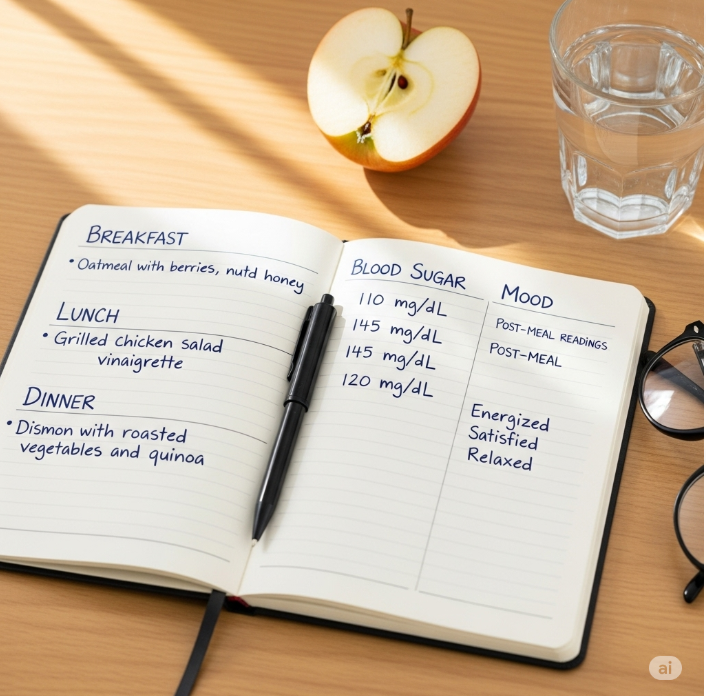 BREAKFAST
• Oatmeal with berries, nutd honey
LUNCH
• Grilled chicken salad
vinaigrette
DINNER
• Dismon with roasted
vegetables and quinoa
BLOOD SUGAR
110 mg/dL
145 mg/dL
145 mg/dL
120 mg/dL
MOOD
POST-MEAL READINGS
POST-MEAL
Energized
Satisfied
Relaxed
ai